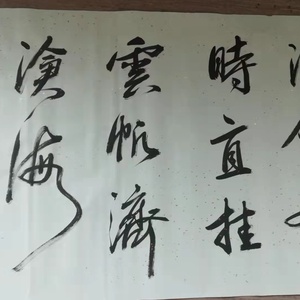 時直挂
雲帆濟
滄海